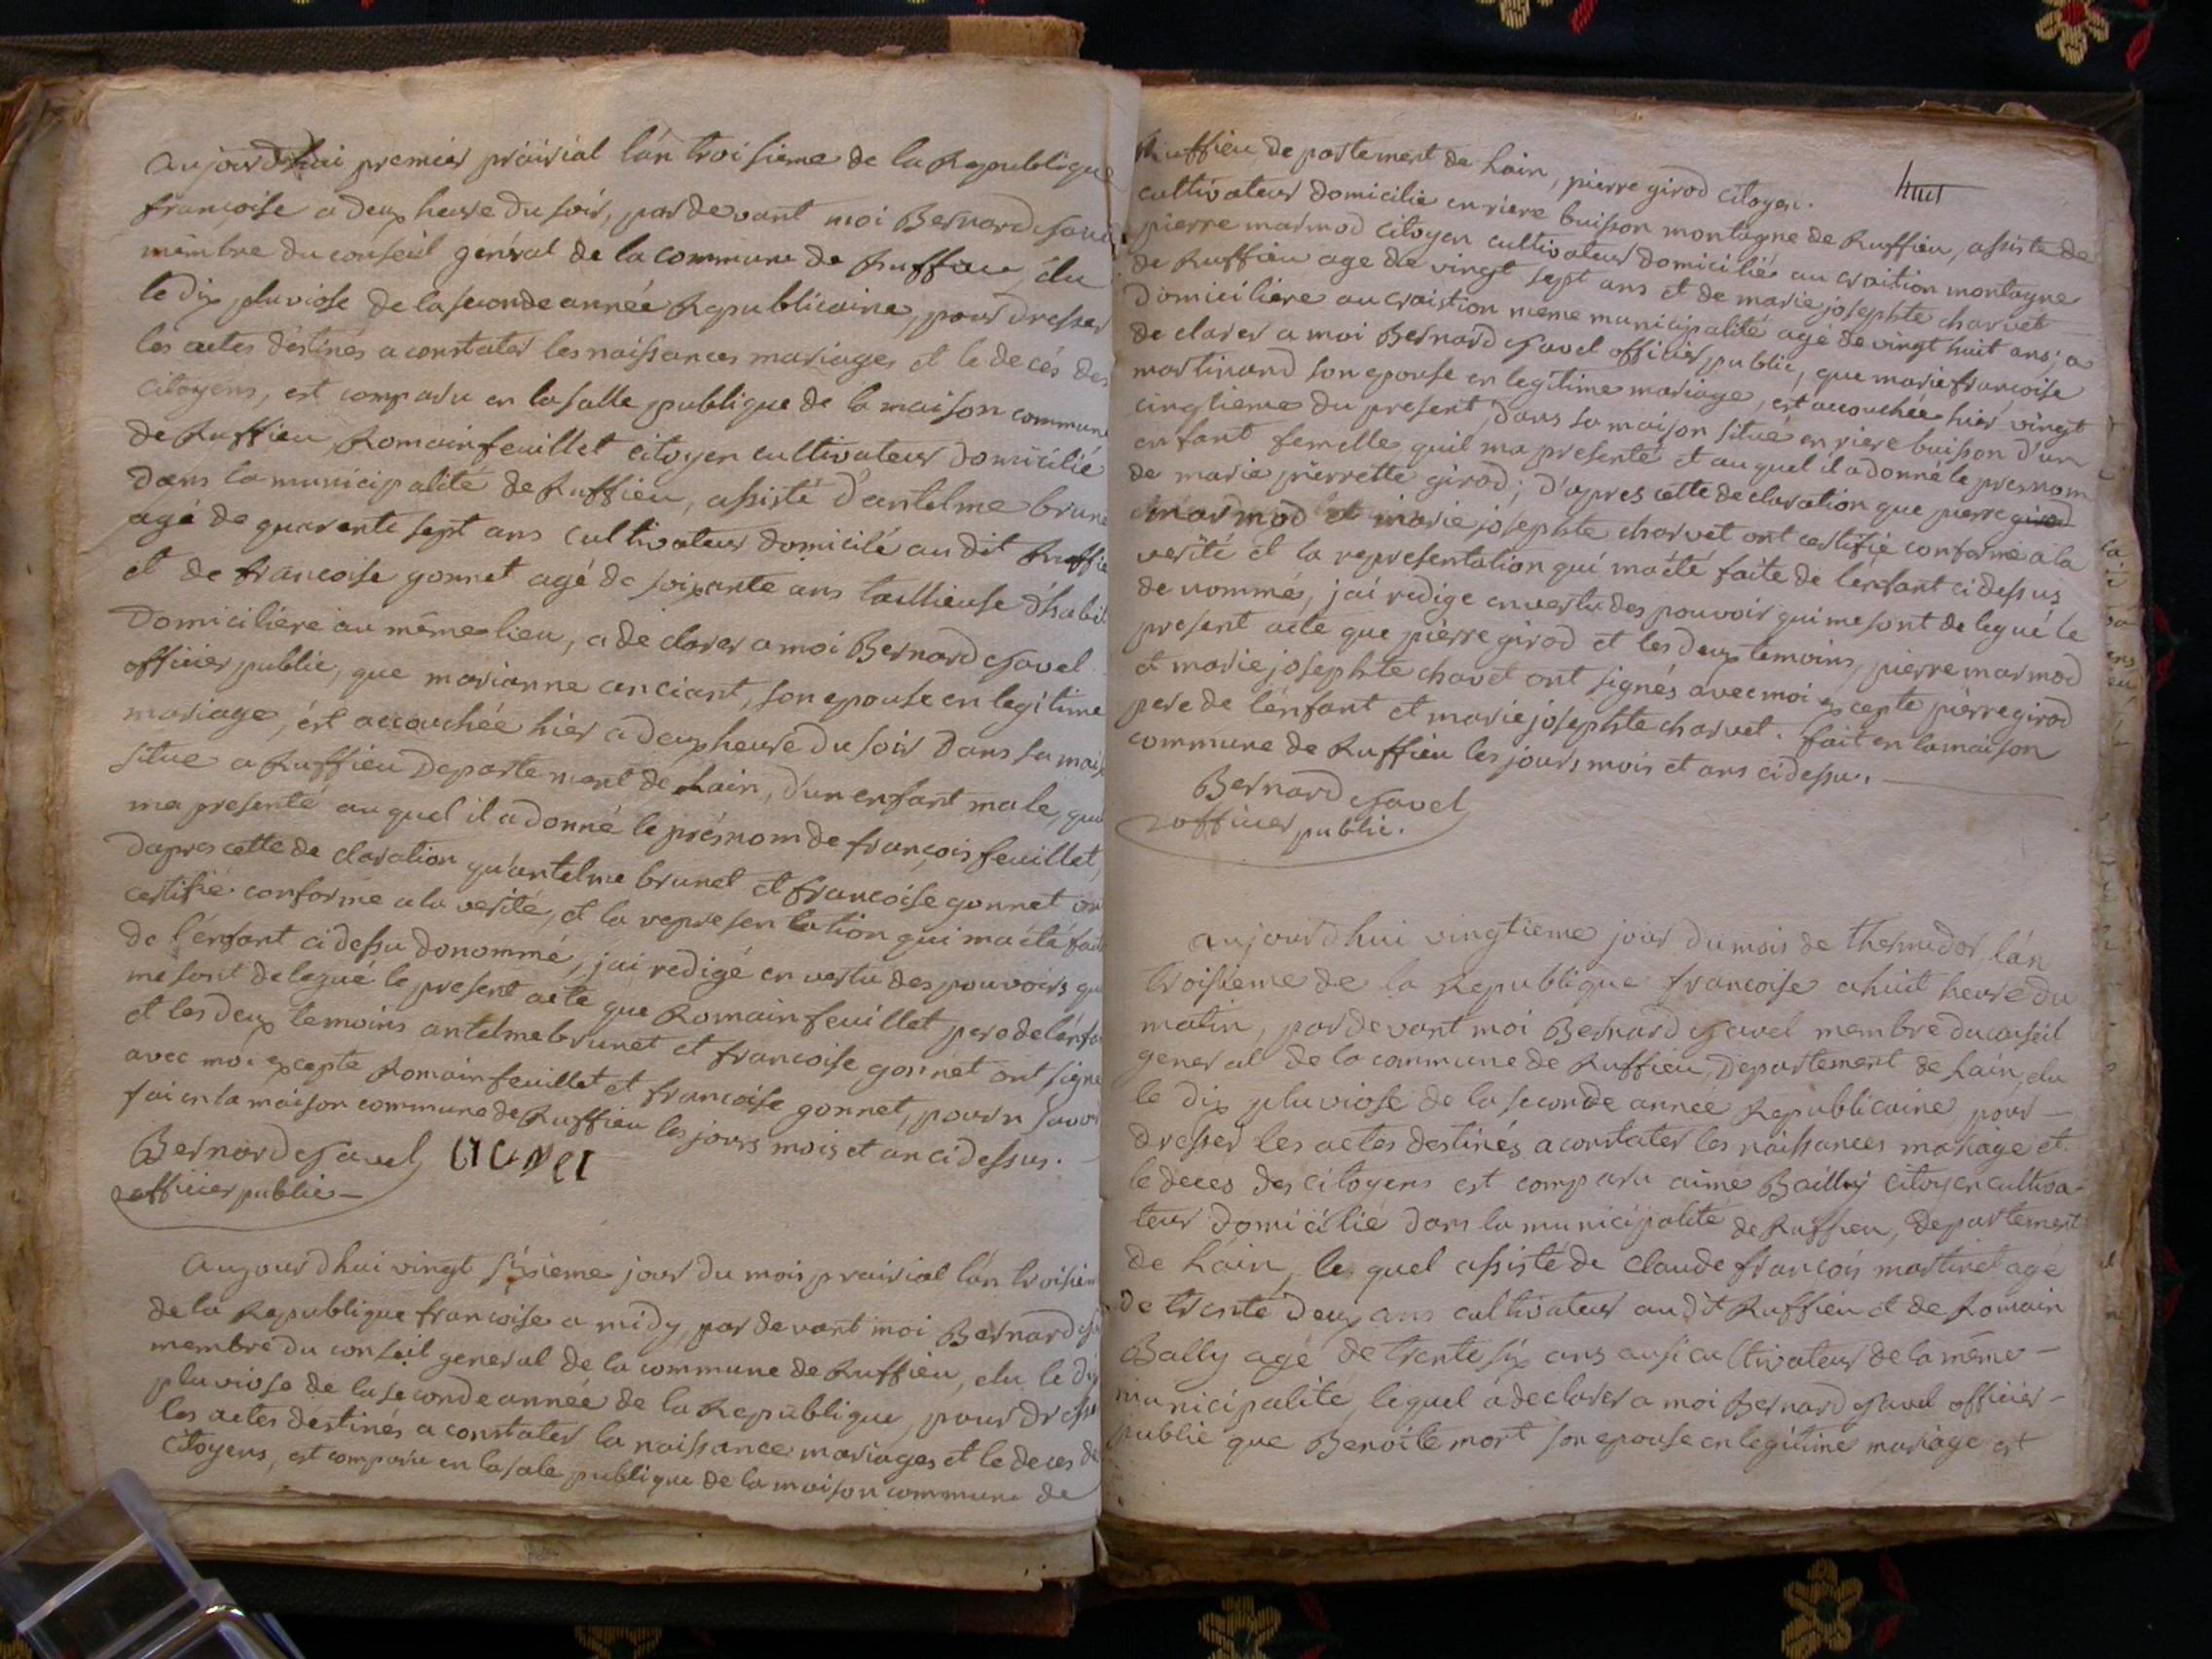 aujourdhui premier prairial l'án troisieme de la Republique
françoise a deux heure du soir, pardevant moi Bernard
membre du conseil genéral de la commune de Ruffieu, élu
le dix pluviose de la seconde année Republicaine, pour dresser
les actes déstinés a constater les naissances mariages et le decés des
citoyens, est comparu en la salle publique de la maison commune
de Ruffieu Romain feuillet citoyen cultivateur domicilié
dans la municipalité de Ruffieu, assisté d'antelme brune
agé de quarente sept ans cultivateur domicilé au dit Ruffie
et de francoise gonnet agé de soixante ans taillieuse d'habit
domicilière au même lieu, a declarer a moi Bernard Savel
officier public, que marianne anciant, son epouse en legitime
mariage, ést accouchée hier a deux heure du soir dans sa mais
situe a Ruffieu departement de Lain, d'un enfant male, qu
ma presenté auquel il a donné le présnom de françois feuillet,
dapres cette declaration qu'antelme brunet et francoise gonnet on
certifié conforme a la verité, et la representation qui ma été fait
de l'énfant cidessu donommé, jai redigé en vertu des pouvoirs qu
me sont delegué le present acte que Romain feuillet pere de lénfa
et les deux temoins antelme brunet et francoise gonnet ont signe
avec moi excepte Romain feuillet et francoise gonnet, pour n savoi
fai en la maison commune de Ruffieu les jours mois et an cidessus.
Bernard Savel
officier public
Aujourdhui vingt sixieme jour du mois prairial l'án troisiem
de la Republique francoise a midy pardevant moi Bernard
membre du conseil general de la commune de Ruffieu, élu le dix
pluviose de la seconde année de la Republique, pour dresse
les actes destinés a constater la naissance mariages et le deces de
citoyens, est comparu en la sale publique de la maison commune de
huit
Ruffieu departement de Lain, pierre girod citoyen
cultivateur domicilie en riere buisson montagne de Ruffieu, assiste de
pierre marmod citoyen cultivateur domicilié au craition montagne
de Ruffieu age de vingt sept ans et de marie josephte charvet
domiciliere au craistion meme municipalité agé de vingt huit ans; a
declarer a moi Bernard Savel officier public, que marie francoise
martinand son epouse en legitime mariage, est accouchée hier vingt
cinqtieme du present, dans sa maison situé en riere buisson d'un
enfant femelle quil ma presenté et auquel il a donné le presnom
de marie pierrette girod; d'apres cette declaration que pierre girod
marmod et marie josephte charvet ont certifié conforme a la
verité et la representation qui ma été faite de l'enfant cidessus
denommés, j'ai redige en vertu des pouvoir qui me sont delegué le
present acte que pierre girod et les deux temoins, pierre marmod
et marie josephte chavet ont signés avec moi excepte pierre girod
pere de l'énfant et marie josephte charvet. fait en la maison
commune de Ruffieu les jours mois et ans cidessu.
Bernard Savel
officier public.
aujourdhui vingtieme jour du mois de thermidor l'án
troisieme de la Republique francoise a huit heure du
matin, pardevant moi Bernard Savel membre du conseil
general de la commune de Ruffieu, departement de Lain, élu
le dix pluviose de la seconde annee Republicaine pour
dresser les actes destinés a constater les naissances mariage et
le deces des citoyens est comparu aimé Bailly citoyen cultiva-
teur domicilié dans la municipalité de Ruffieu, departement
de Lain, lequel assisté de claude françois martinet agé
de trente deux ans cultivateur au dit Ruffieu et de Romain
Bally agé de trente six ans ausi cultivateur de la même
municipalité, lequel a declarer a moi Bernard Savel officier
public que Benoite mort son epouse en legitime mariage est